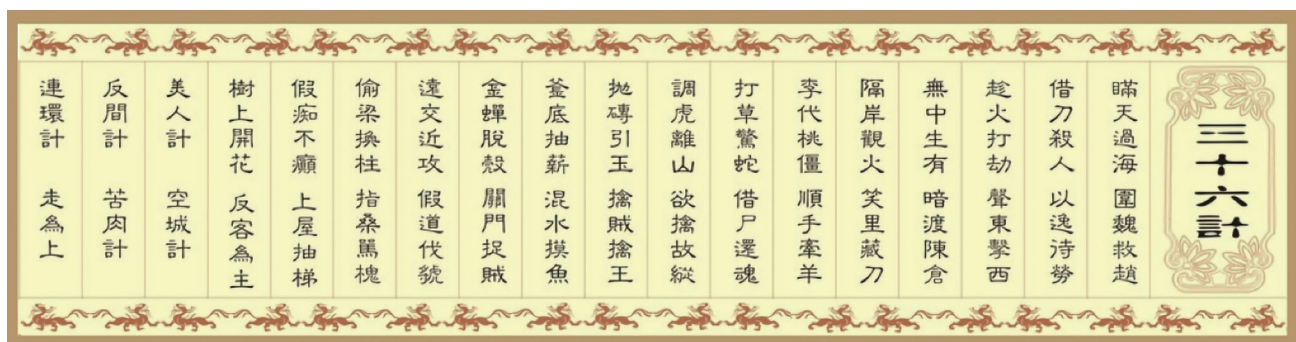 三十六計
瞞天過海 圍魏救趙
借刀殺人 以逸待勞
趁火打劫 聲東擊西
無中生有 暗渡陳倉
隔岸觀火 笑里藏刀
李代桃僵 順手牽羊
打草驚蛇 借尸還魂
調虎離山 欲擒故縱
拋磚引玉 擒賊擒王
釜底抽薪 混水摸魚
金蟬脫殼 關門捉賊
遠交近攻 假道伐虢
偷梁換柱 指桑罵槐
假痴不癲 上屋抽梯
樹上開花 反客為主
美人計 空城計
反間計 苦肉計
連環計 走為上